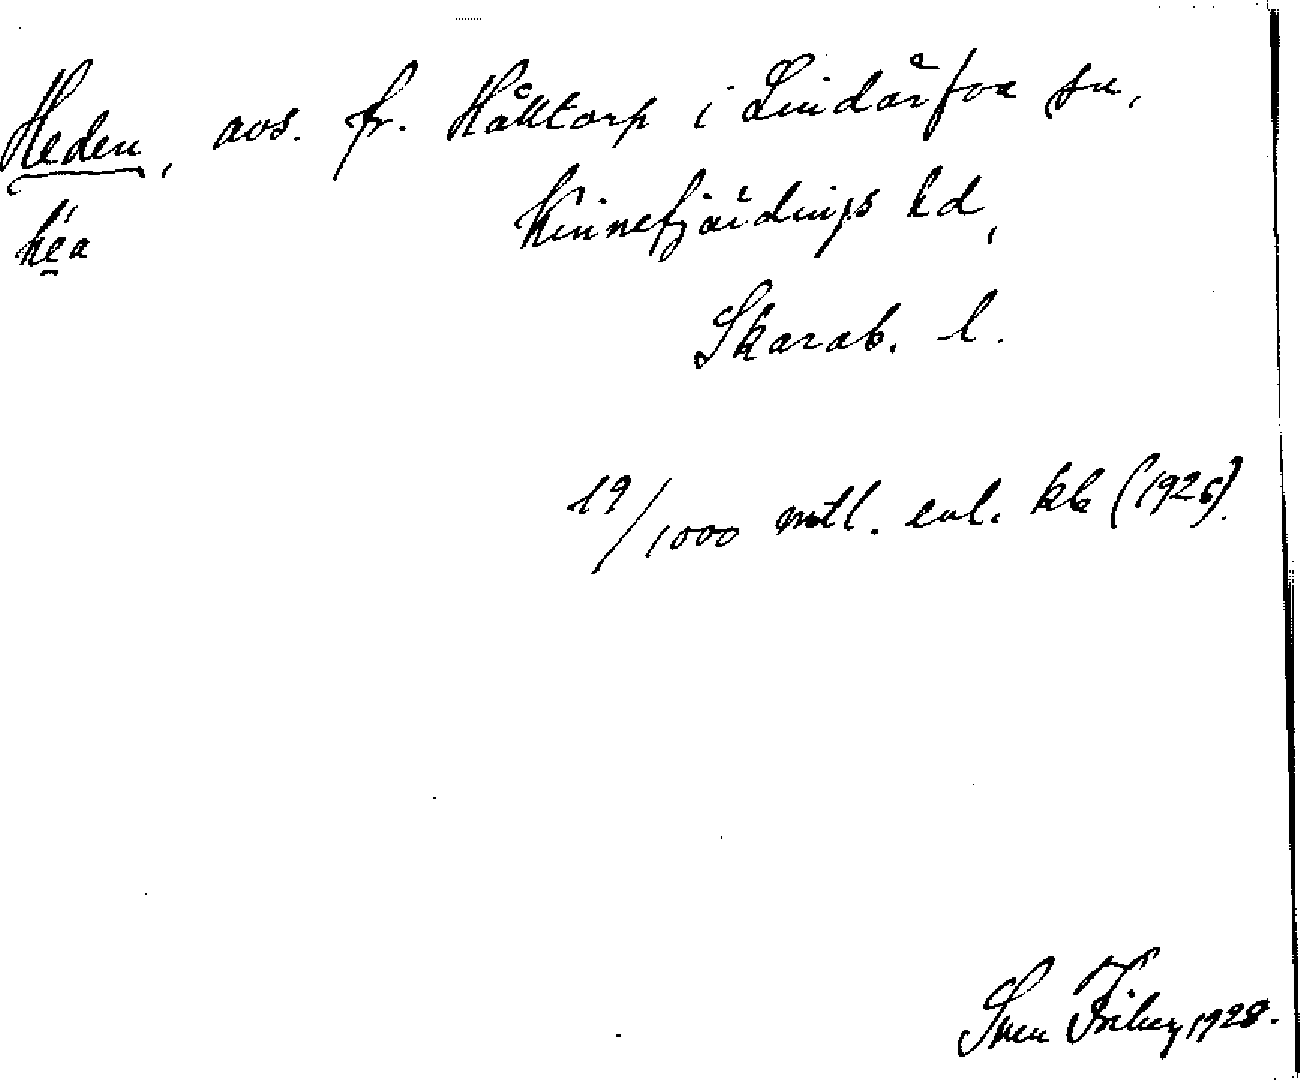 Heden, avs. fr. Hålltorp i Lindärfva sn,
héa
Kinnefjärdings hd,
Skarab. l.
19/1000 mtl. enl. kb (1926).
Sven Friberg 1928.